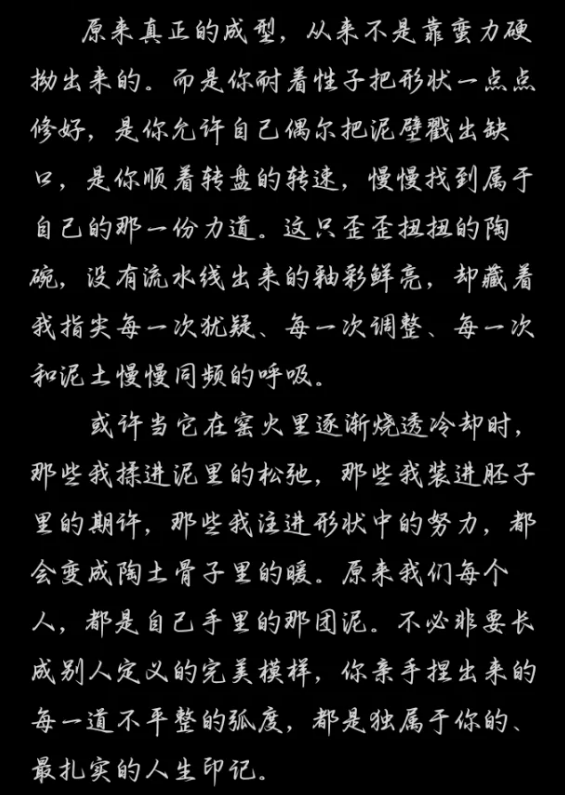 原来真正的成型，从来不是靠蛮力硬
拗出来的。而是你耐着性子把形状一点点
修好，是你允许自己偶尔把泥壁戳出缺
口，是你顺着转盘的转速，慢慢找到属于
自己的那一份力道。这只歪歪扭扭的陶
碗，没有流水线出来的釉彩鲜亮，却藏着
我指尖每一次犹疑、每一次调整、每一次
和泥土慢慢同频的呼吸。
或许当它在窑火里逐渐烧透冷却时，
那些我揉进泥里的松弛，那些我装进胚子
里的期许，那些我注进形状中的努力，都
会变成陶土骨子里的暖。原来我们每个
人，都是自己手里的那团泥。不必非要长
成别人定义的完美模样，你亲手捏出来的
每一道不平整的弧度，都是独属于你的、
最扎实的人生印记。